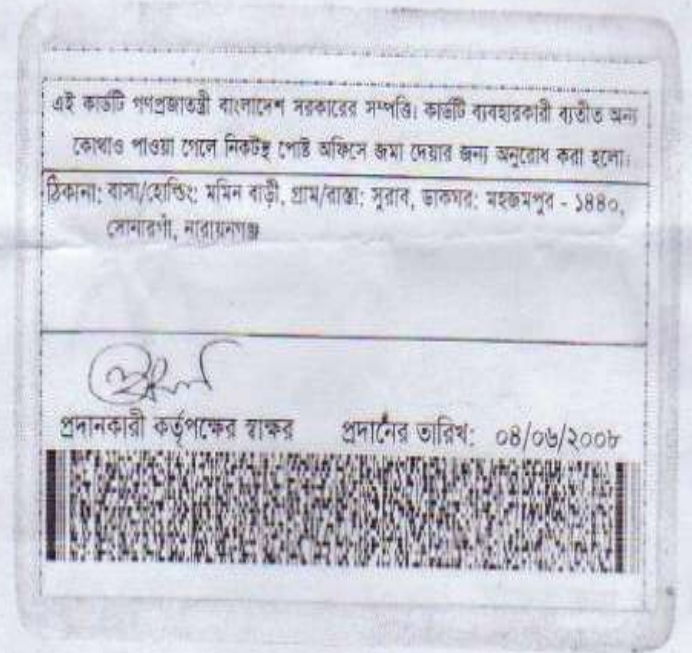 এই কার্ডটি গণপ্রজাতন্ত্রী বাংলাদেশ সরকারের সম্পত্তি। কার্ডটি ব্যবহারকারী ব্যতীত অন্য
কোথাও পাওয়া গেলে নিকটস্থ পোষ্ট অফিসে জমা দেয়ার জন্য অনুরোধ করা হলো।
ঠিকানা: বাসা/হোল্ডিং: মমিন বাড়ী, গ্রাম/রাস্তা: সুরাব, ডাকঘর: মহজমপুর - ১৪৪০,
সোনারগাঁ, নারায়নগঞ্জ
প্রদানকারী কর্তৃপক্ষের স্বাক্ষর প্রদানের তারিখ: ০৪/০৬/২০০৮